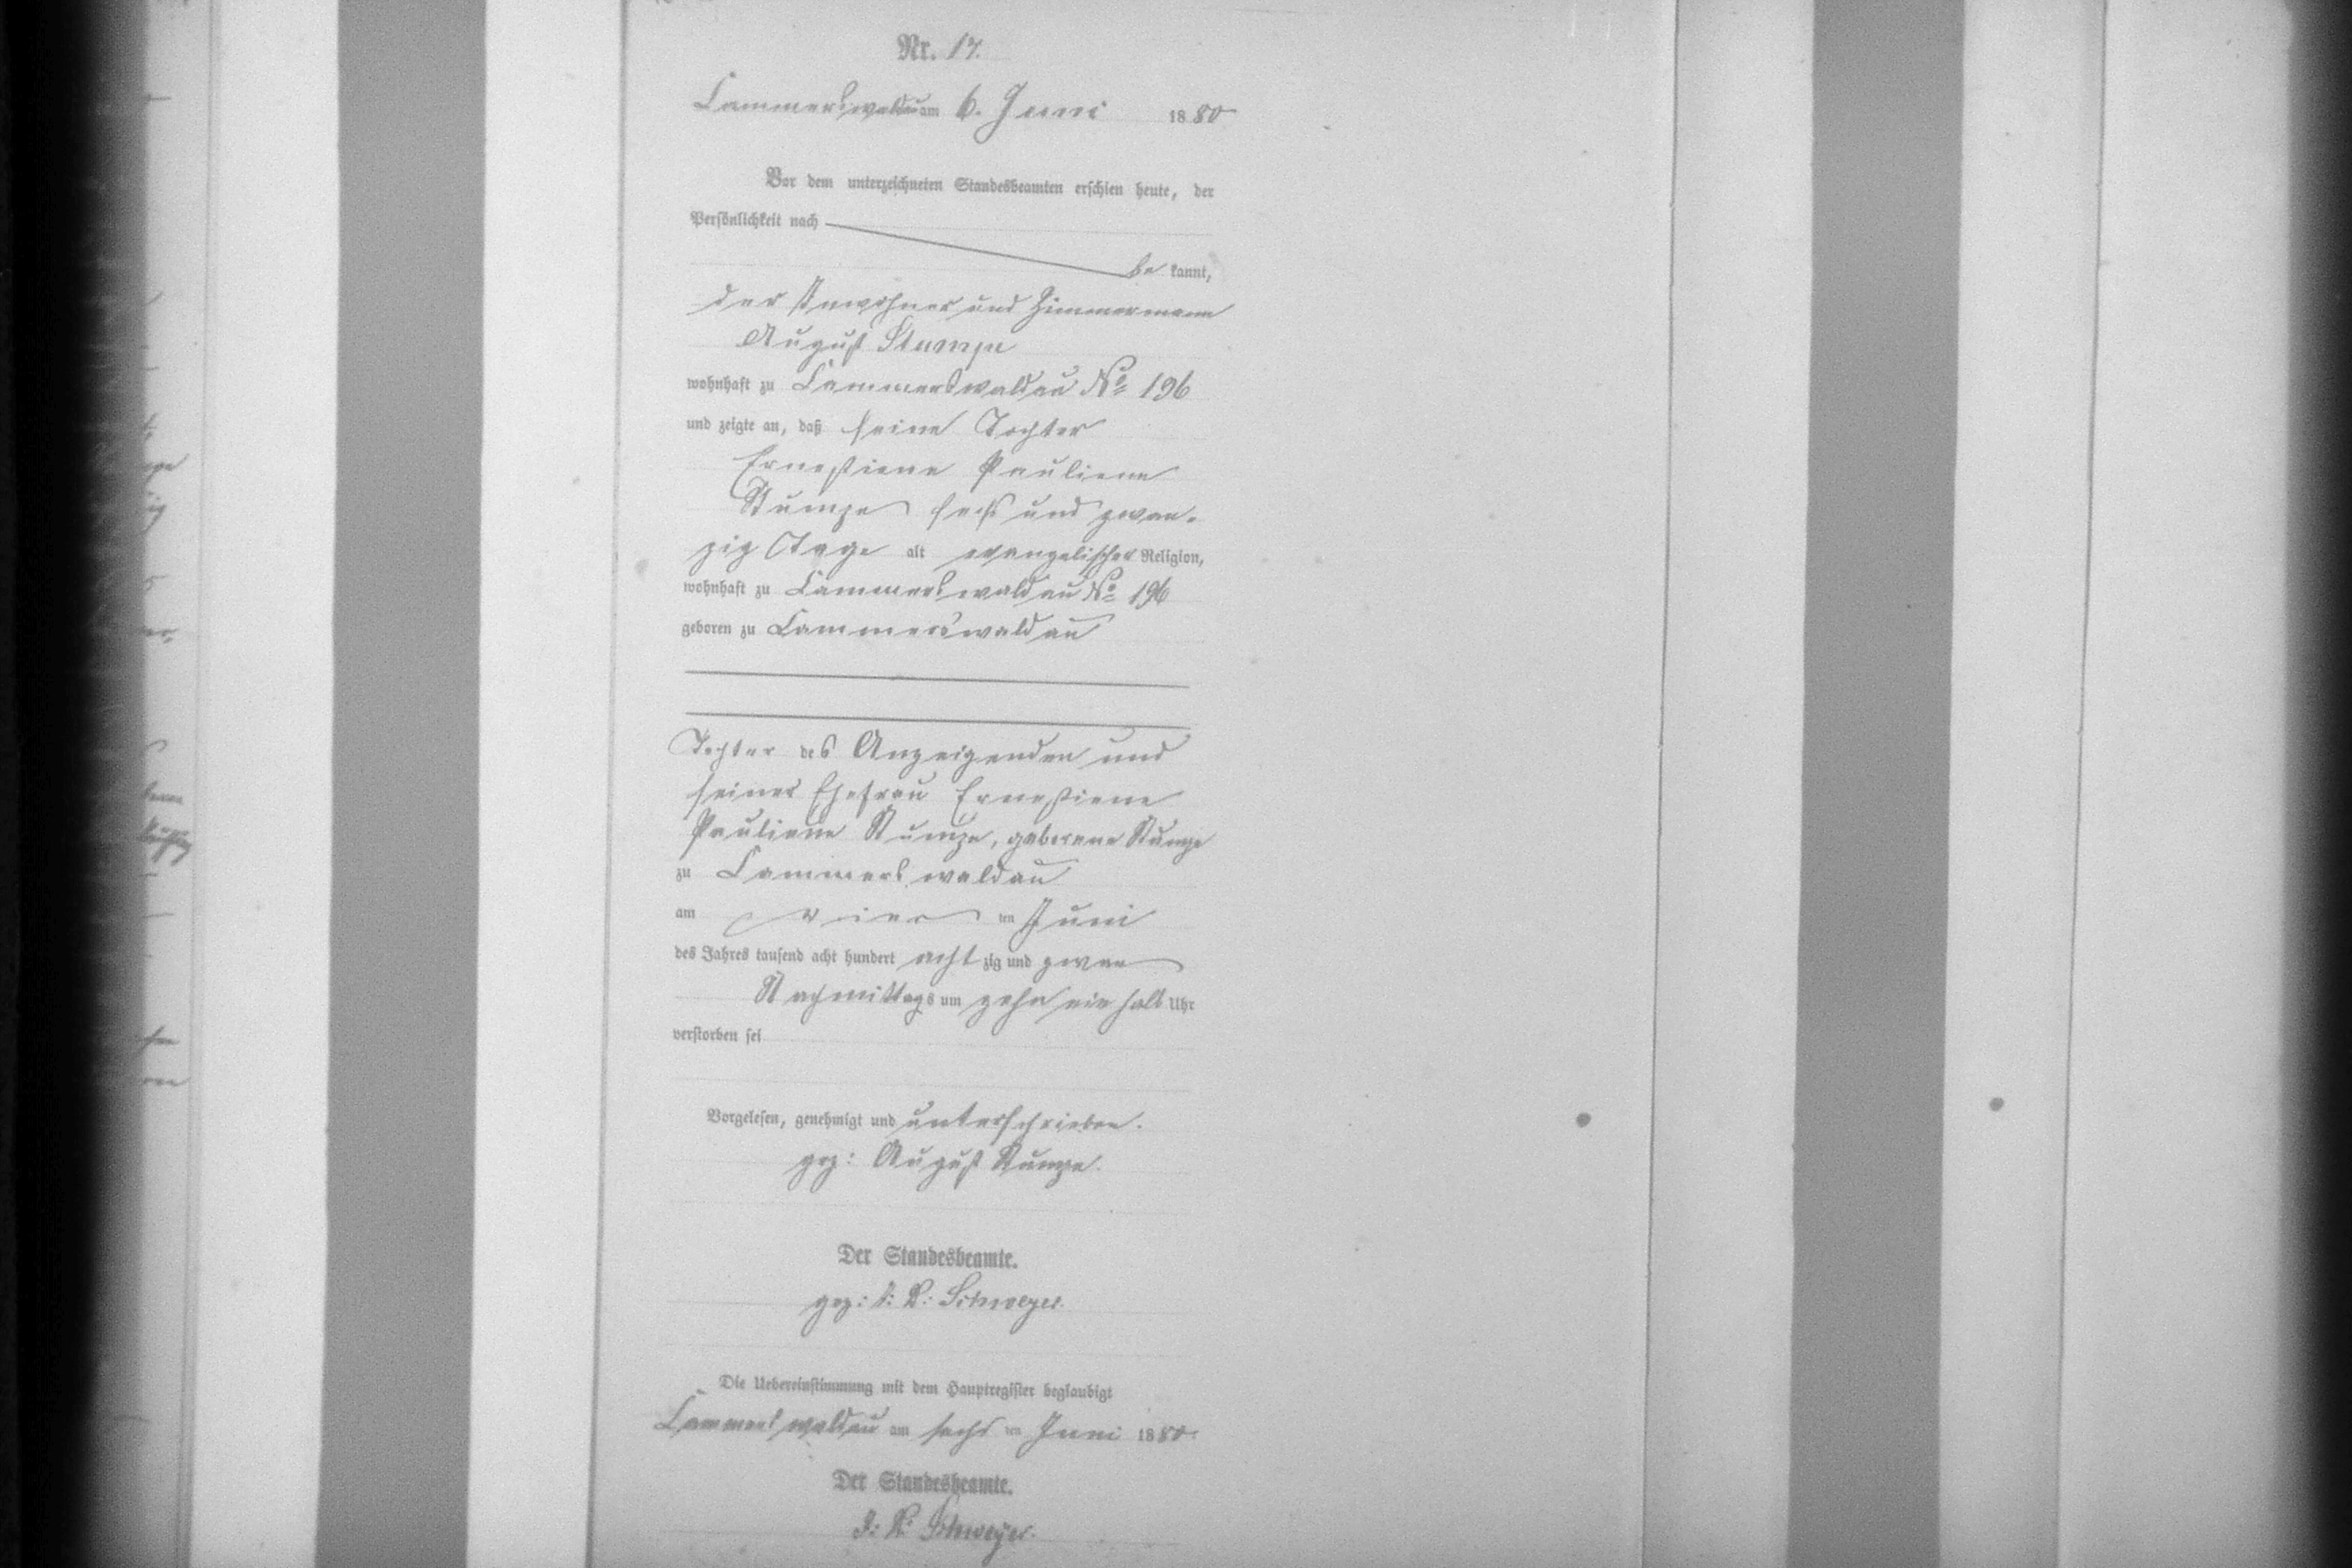 Nr. 17.
Cammerswaldau am 6. Juni 1880
Vor dem unterzeichneten Standesbeamten erschien heute, der
Persönlichkeit nach
be kannt,
der Inwohner und Zimmermann
August Stumpe
wohnhaft zu Cammerswaldau No 196
und zeigte an, daß seine Tochter
Ernestiene Pauliene
Stumpe sechs und zwan-
zig Tage alt evangelischer Religion,
wohnhaft zu Cammerswaldau No 196
geboren zu Cammerswaldau
Tochter des Anzeigenden und
seiner Ehefrau Ernestiene
Pauliene Stumpe, geborene Stumpe
zu Cammerswaldau
am ten Juni
des Jahres tausend acht hundert acht zig und zwar
Nachmittags um zehn ein halb Uhr
verstorben sei
Vorgelesen, genehmigt und unterschrieben.
gez: August Stumpe.
Der Standesbeamte.
gez: Schweyer.
Die Uebereinstimmung mit dem Hauptregister beglaubigt
Cammerswaldau am sechs ten Juni 1880.
Der Standesbeamte.
Schweyer.